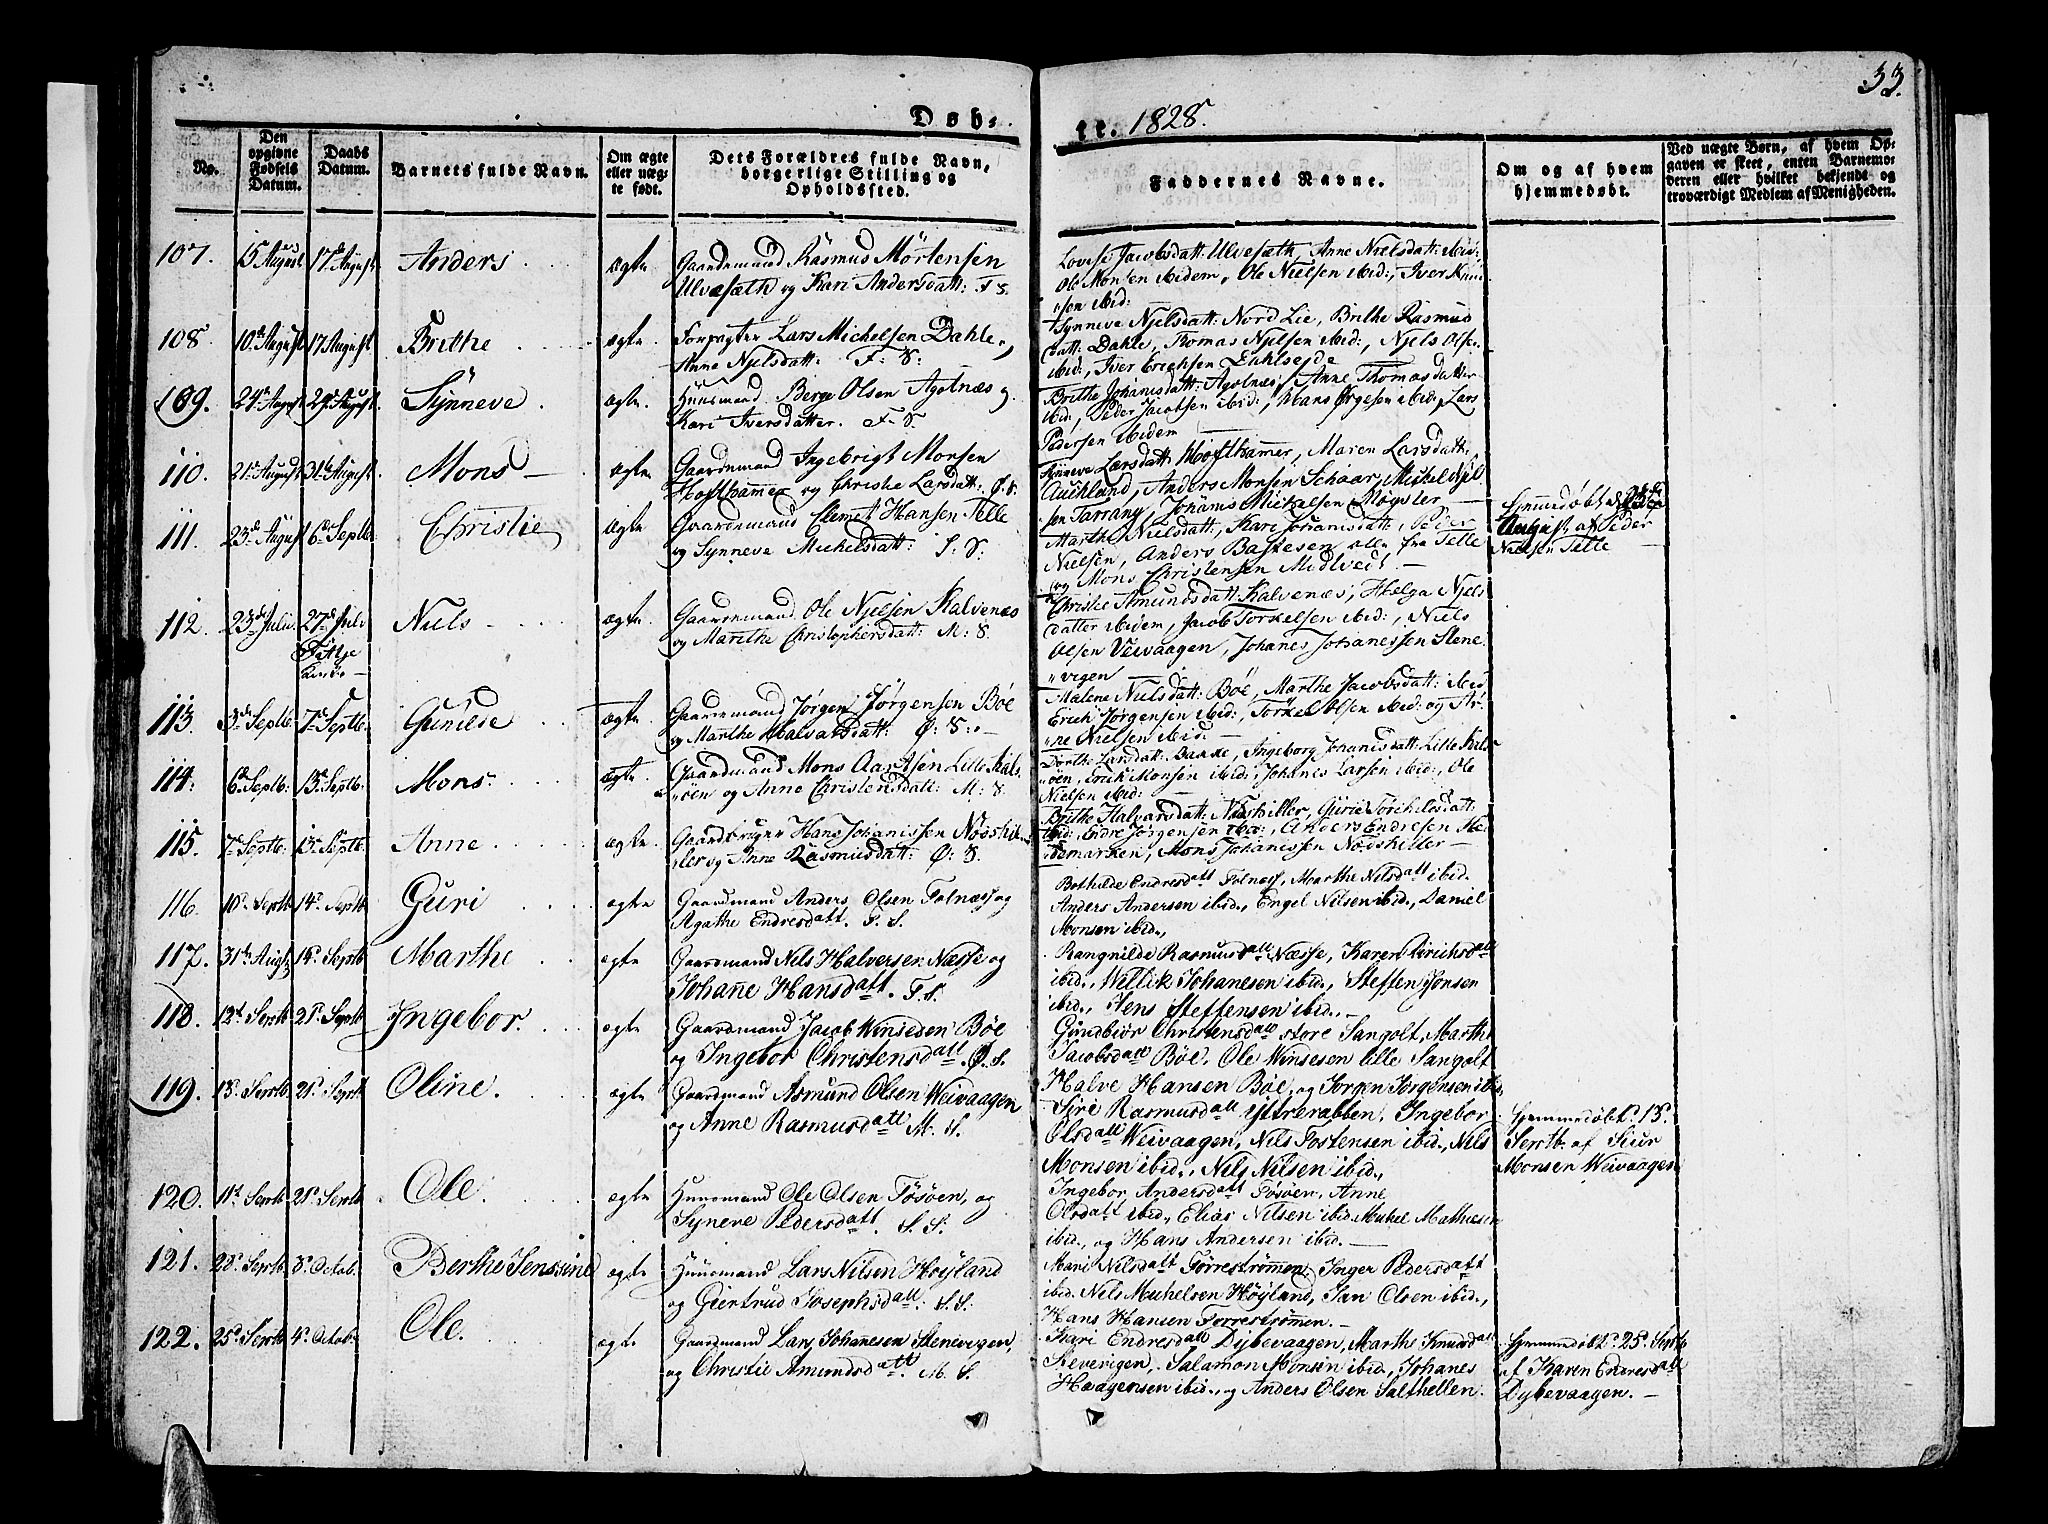 33.
Døb-
te. 1828.
No.
Den opgivne Fødsels Datum.
Daabs Datum.
Barnets fulde Navn.
Om ægte eller uægte født.
Dets Forældres fulde Navn, borgerlige Stilling og Opholdssted.
Faddernes Navne.
Om og af hvem hjemmedøbt.
Ved uægte Børn, af hvem Opgaven er skeet, enten Barnemoderen eller hvilket bekjendt og troværdigt Medlem af Menigheden.
107. 15 August 17de August Anders ægte Gaardmand Rasmus Mörtensen
Ulvesæth og Kari Andersdatt: F S.
Lovise Jacobsdatt Ulvesæth, Anne Nielsdatt: ibid:
Ole Monsen ibidem, Ole Nielsen ibid:, Iver Knud
"sen ibid:
108. 10de August 17 August Brithe ægte. Forpagter Lars Michelsen Dahle,
Anne Njelsdatt: F: S:
Synneve Njelsdatt: Nord Lie, Brithe Rasmus
datt: Dahle, Thomas Njelsen ibid:, Njels Olse
ibid:, Iver Erichsen
109. 24de August Synneve ægte. Huusmand Berge Olsen Agotnæs og
Kari Iversdatter. F. S.
Brithe Johanisdatt: Agotnæs, Anne Thomasdatter
ibid:, Peder Jacobsen ibid:, Hans ibid, Lars
Pedersen ibidem
110. 21de August 31te August Mons ægte Gaardmand Ingebrigt Monsen
Hofthammer og Christie Larsdatt: Ø: S.
Synneve Larsdatt: Hofthammer, Maren Larsdatt:
Auchland, Anders Monsen Schaar, Mickel Njel
sen Tarrang, Johanis Mickelsen Mogster
111. 23de August 6te Septb: Christie ægte Gaardmand Clemet Hansen Telle
og Synneve Michelsdatt: S. S.
Marthe Nielsdatt:, Kari Johanisdatt:, Peder
Nielsen, Anders Bastesen alle fra Telle
og Mons Christensen Midtvedt
August af Peder
Nielsen Telle
112. 23de Juli. 27de Juli Niels ægte. Gaardmand Ole Njelsen Kalvenæs
og Marithe Christophersdatt: M: S.
Fittje
Kirke
Christie Amundsdatt: Kalvenæs, Helga Njels
datter ibidem, Jacob Torkelsen ibid:, Niels
Olsen Veivaagen, Johanes Johanessen Stene
"vigen
113. 3de Septb: 7de Septb: Gunilde ægte. Gaardmand Jørgen Jørgensen Bøe
og Marthe Halvarsdatt: Ø: S:
Malene Nielsdatt: Bøe, Marthe Jacobsdatt: ibid
Erich Jørgensen ibid:, Torkel Olsen ibid: og Ar
"ne Nielsen ibid:
114. 6te Septb: 13de Septb: Mons ægte. Gaardmand Mons Lille Kals
"øen og Anne Christensdatt: M: S
Dorth: Larsdatt: Bakke, Ingeborg Johanisdatt: Lille Kals
"øen, Erik Monsen ibid:, Johanes Larsen ibid:, Ole
Nielsen ibid:
115. 7de Septb: 13de Septb: Anne ægte. Gaardbruger Hans Johanissen Nøsski
"ler og Anne Rasmusdatt: Ø: S.
Brithe Halvarsdatt: Gurie Torkilsdatt:
ibid:, Endre Jørgensen ibid:, Anders Endresen He
"demarken, Mons Johanissen Nødskiller
116. 10de Septb 14de Septb Guri ægte Gaardmand Anders Olsen Folnæs og
Agathe Endresdatt. F. S.
Bothilde Endresdatt Folnæs, Marthe Nilsdatt ibid.
Anders Andersen ibid., Engel Nilsen ibid., Daniel
Monsen ibid.,
117. 31te Augt. Septb Marthe ægte Gaardmand Nils Halversen Næsse og
Johanne Hansdatt. F. S.
Rangnilde Rasmusdatt Næsse, Karen Dirichsdatt
ibid., Willik Johanesen ibid., Steffen Jonsen
ibid., Jens Steffensen ibid.,
118. 12te Septb 21de Septb Ingebor. ægte Gaardmand Jacob Winsesen Bøe
og Ingebor Christensdatt. Ø. S.
Gundbiør Christensdatt store Sangolt, Marthe
Jacobsdatt Bøe, Ole Winsesen lille Sangolt
Halve Hansen Bøe, og Jørgen Jørgensen ibid.
119. 13de Septb 21de Septb Oline. ægte Gaardmand Asmund Olsen Weivaagen
og Anne Rasmusdatt M. S.
Siri Rasmusdatt Ytrerabben, Ingebor
Olsdatt Weivaagen, Nils Tostensen ibid., Nils
Monsen ibid., Nils Nilsen ibid.,
Hjemmedøbt 13de
Septb. af Siur
Monsen Weivaagen
120. 11te Septb 21de Septb Ole. ægte Huusmand Ole Olsen Tøsøen, og
Syneve Pedersdatt. S. S.
Ingebor Andersdatt Tøsøen, Anne
Olsdatt ibid., Elias Nilsen ibid. Michel Mathiesen
ibid., og Hans Andersen ibid.
121. 28de Septb Octob. Berthe Jenssine ægte Huusmand Lars Nilsen Höyland
og Giertrud Josephsdatt: S. S.
Mari Nilsdatt Forrestrømmen, Inger Pedersdatt
ibid. Nils Michelsen Höyland, Jan Olsen ibid.,
Hans Hansen Forrestrømen.
122. 25de Septb 4de Octob. Ole. ægte Gaardmand Lars Johannesen Stenevigen,
og Christie Amundsdatt. M. S.
Kari Endresdatt Dybevaagen, Marthe Knudsdatt
Stenevigen. Salamon Monsen ibid., Johanes
Haagensen ibid., og Anders Olsen Salthellen.
Hjemmedøbt 25de Septb
af Karen Endresdatt
Dybevaagen.